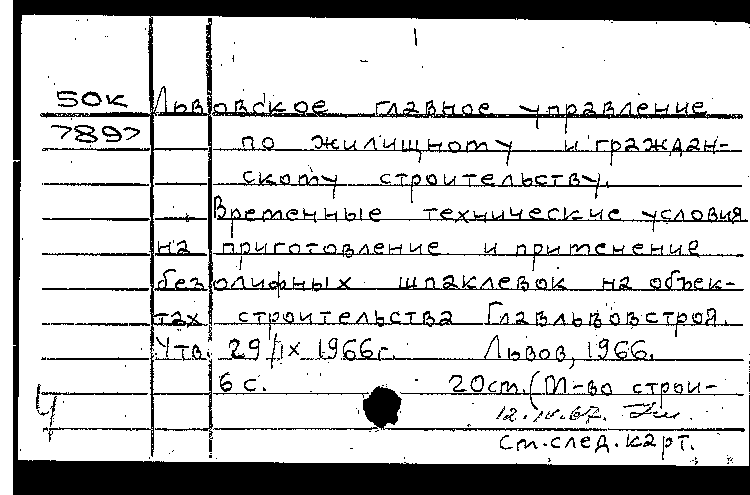 50к Львовское главное управление
7897 по жилищному и граждан-
скому строительству.
Временные технические условия
на приготовление и применение
безолифных шпаклевок на объек-
тах строительства Главльвовстроя.
Утв. 29/IX 1966г. Львов, 1966.
6 с. 20см. (М-во строи-
12.IV.67.
См. след. карт.